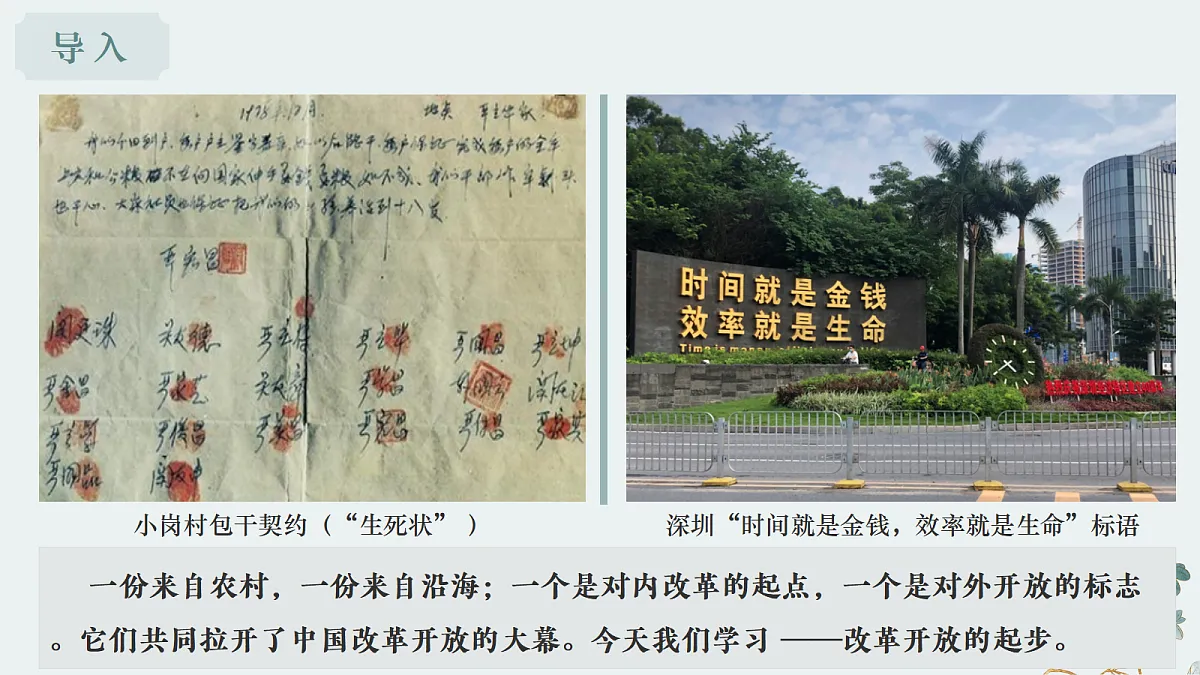 导入
1978年12月 地点 严立华家
我们分田到户，每户户主签字盖章，如以后能干，每户保证完成每户的全年
上交和公粮，不在向国家伸手要钱要粮，如不成，我们干部作牢杀头
也干心，大家社员也保证把我们的小孩养活到十八岁。
严宏昌
时间就是金钱
效率就是生命
小岗村包干契约（“生死状” ）
深圳“时间就是金钱，效率就是生命”标语
一份来自农村，一份来自沿海；一个是对内改革的起点，一个是对外开放的标志
。它们共同拉开了中国改革开放的大幕。今天我们学习 ——改革开放的起步。